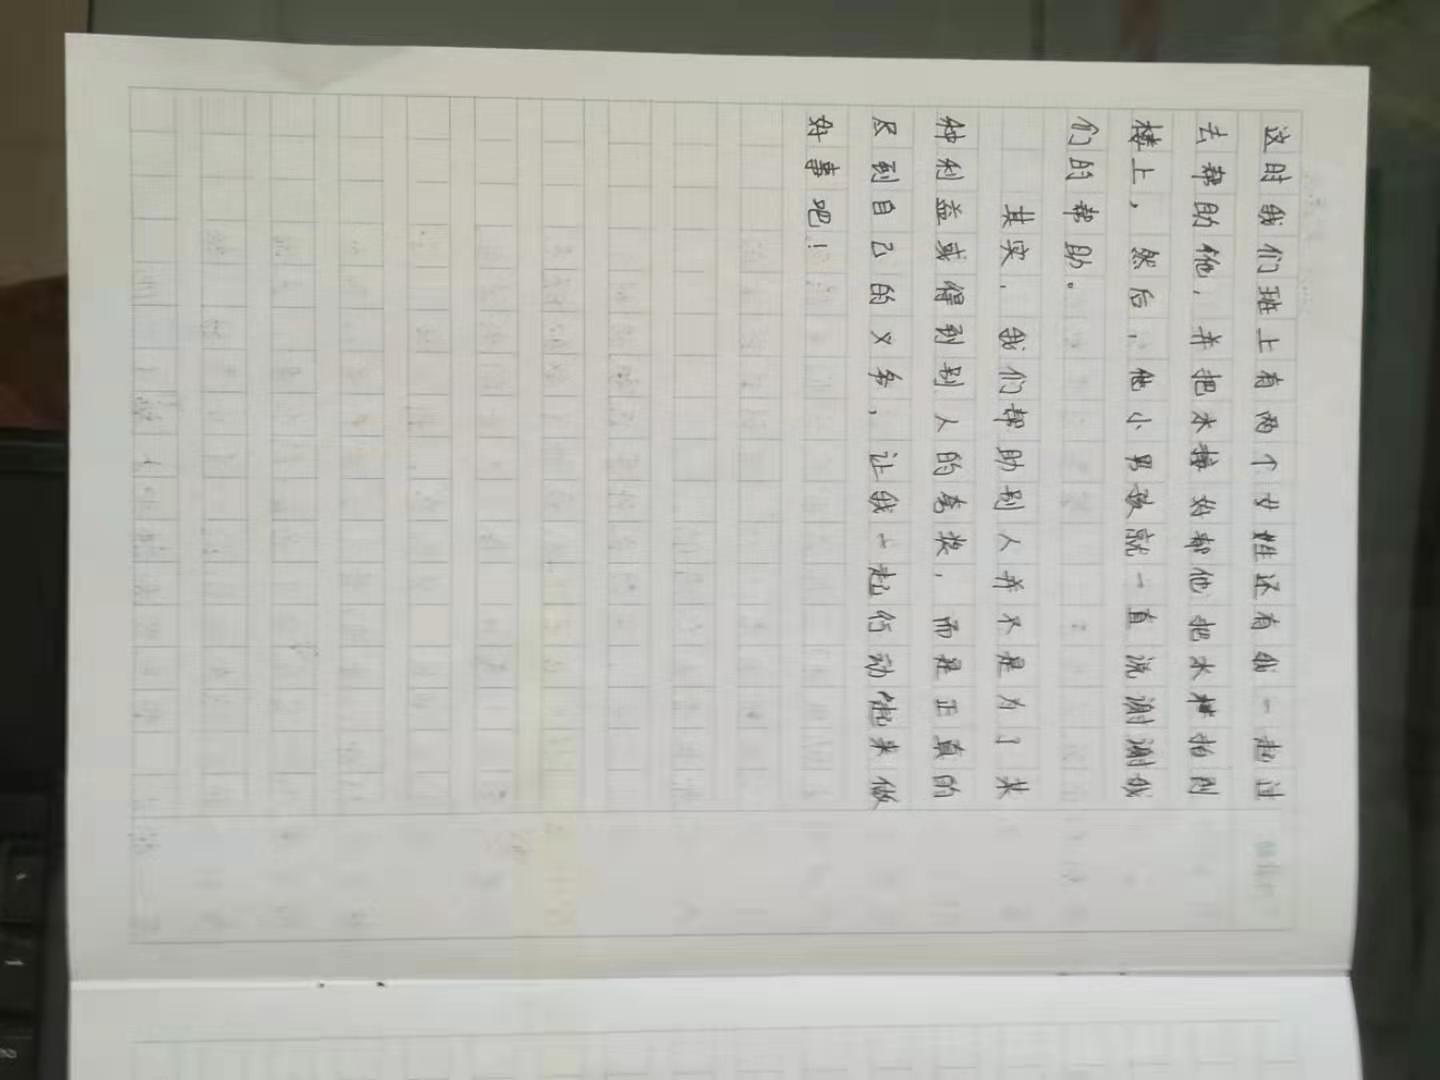 这时我们班上有两个女姓还有我一起过
去帮助他，并把水接好帮他把水桶抬到
楼上，然后，他小男孩就一直说谢谢我
们的帮助。
其实，我们帮助别人并不是为了某
种利益或得到别人的夸奖，而是正真的
尽到自己的义务，让我一起行动起来做
好事吧！